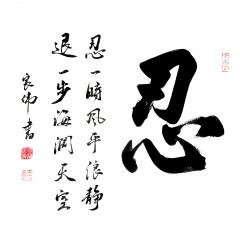 忍
忍一時風平浪靜
退一步海闊天空
良偉書